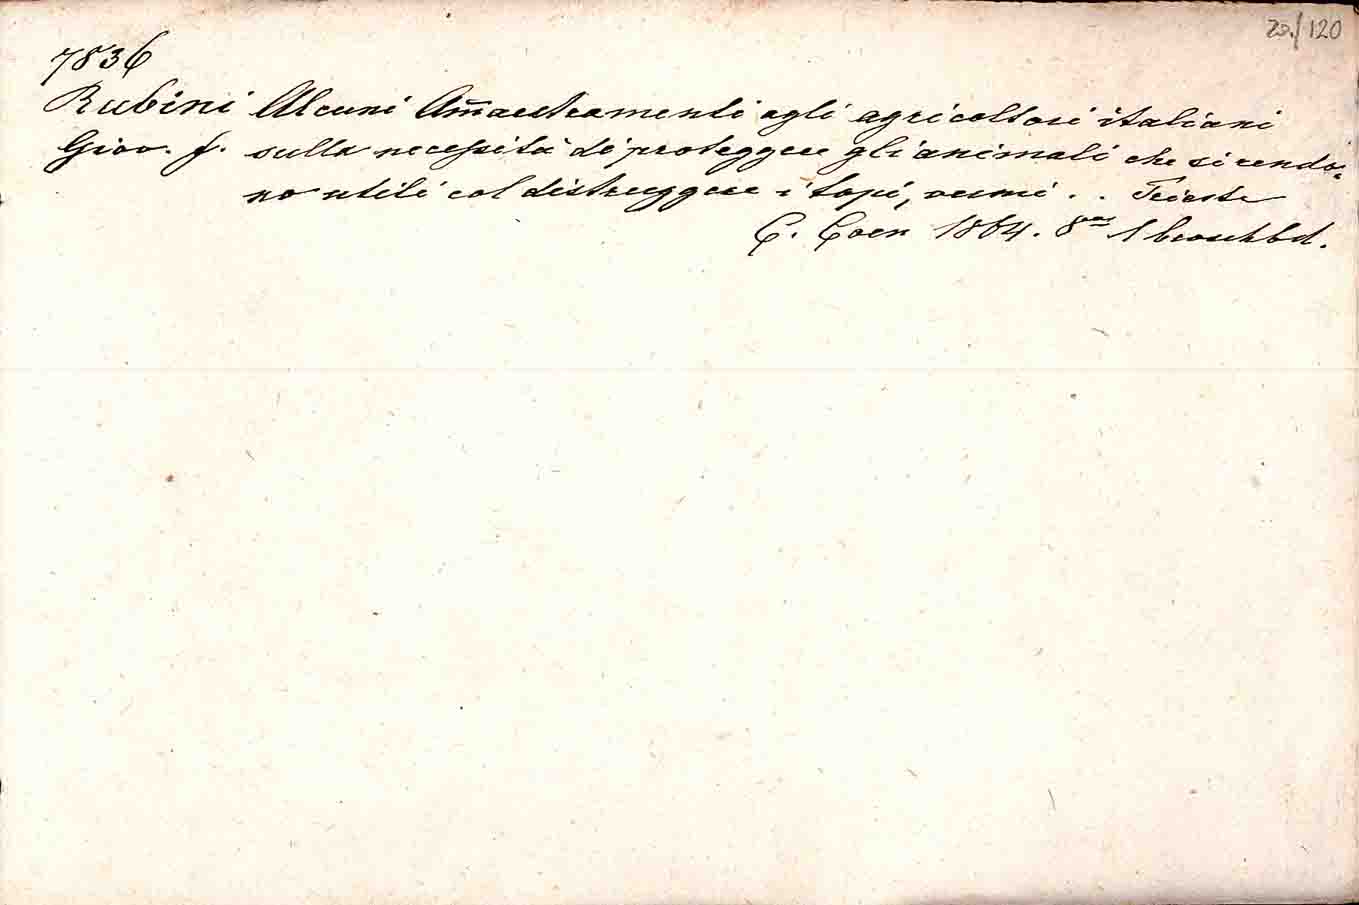 20./120
7836
Rubini Alcuni Am̄aestramenti agli agricoltori italiani
Giov. J. sulla necessità di proteggere gli animali che si rendo-
no utili col distruggere i topi, vermi . . Trieste
C. Coen 1864. 8vo 1 broschbd.